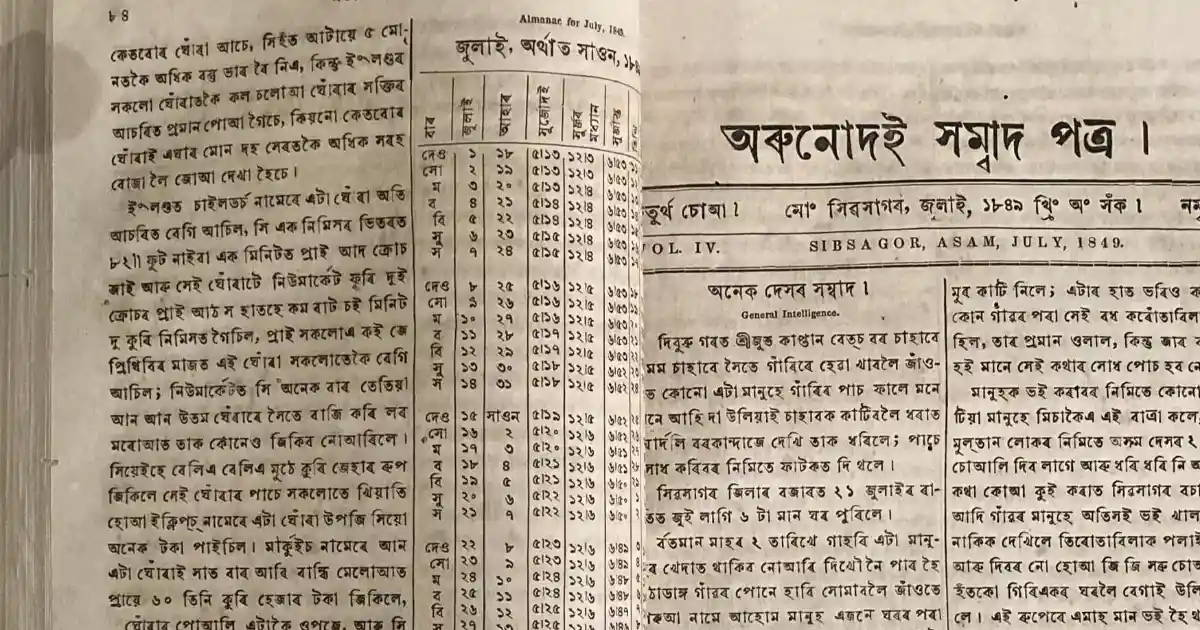 ৮৪
কেতবোৰ ঘোঁৰা আচে, সিহঁত আটায়ে ৫ মো-
নতকৈ অধিক বস্তু ভাৰ বৈ নিএ, কিন্তু ইংলণ্ডৰ
সকলো ঘোঁৰাতকৈ কল চলোআ ঘোঁৰাৰ সক্তিৰ
আচৰিত প্ৰমান পোআ গৈচে, কিয়নো কেতবোৰ
ঘোঁৰাই এঘাৰ মোন দহ সেৰতকৈ অধিক গধুৰ
বোজা লৈ জোআ দেখা হৈচে।
ইংলণ্ডত চাইলডৰ্চ নামেৰে এটা ঘোঁৰা অতি
আচৰিত বেগি আচিল, সি এক নিমিসৰ ভিতৰত
৮২॥ ফুট নাইবা এক মিনিটত প্ৰাই আদ ক্ৰোচ
জাই আৰু সেই ঘোঁৰাটে নিউমাৰ্কেট ফুৰি দুই
ক্ৰোচৰ প্ৰাই আঠ স হাতহে কম বাট চই মিনিট
দু কুৰি নিমিসত গৈচিল, প্ৰাই সকলোএ কই জে
প্ৰিথিবিৰ মাজত এই ঘোঁৰা সকলোতকৈ বেগি
আচিল; নিউমাৰ্কেটত সি অনেক বাৰ তেতিয়া
আন আন উতম ঘোঁৰাৰে সৈতে বাজি কৰি লৰ
মৰোআত তাক কোনেও জিকিব নোআৰিলে।
সিয়েইহে বেলিএ বেলিএ মুঠে কুৰি হেজাৰ ৰূপ
জিকিলে সেই ঘোঁৰাৰ পাচে সকলোতে খিয়াতি
হোআ ইক্লিপ্চ নামেৰে এটা ঘোঁৰা উপজি সিয়ো
অনেক টকা পাইচিল। মাৰ্কুইচ নামেৰে আন
এটা ঘোঁৰাই সাত বাৰ আৰি বান্ধি মেলোআত
প্ৰায়ে ৬০ তিনি কুৰি হেজাৰ টকা জিকিলে,
ঘোঁৰাৰ পোআলি এটাকৈ ওপজে, আৰু সি
Almanac for July, 1849.
জুলাই, অৰ্থাত সাওন, ১৮৪৯
বাৰ জুলাই আহাৰ সুৰ্জোদই সুৰ্জৰ মধ্যান সুৰ্জাস্ত
দেও ১ ১৮ ৫।১৩ ১২।৩ ৬।৫৩
সো ২ ১৯ ৫।১৩ ১২।৩ ৬।৫৩
ম ৩ ২০ ৫।১৩ ১২।৪
ব ৪ ২১ ৫।১৪ ১২।৪
বি ৫ ২২ ৫।১৪ ১২।৪
সু ৬ ২৩ ৫।১৫ ১২।৪
স ৭ ২৪ ৫।১৫ ১২।৪
দেও ৮ ২৫ ৫।১৬ ১২।৫
সো ৯ ২৬ ৫।১৬ ১২।৫
ম ১০ ২৭ ৫।১৬ ১২।৫
ব ১১ ২৮ ৫।১৭ ১২।৫
বি ১২ ২৯ ৫।১৭ ১২।৫
সু ১৩ ৩০ ৫।১৮ ১২।৫
স ১৪ ৩১ ৫।১৮ ১২।৫
দেও ১৫ সাওন ৫।১৯ ১২।৫
সো ১৬ ২ ৫।২০ ১২।৬
ম ১৭ ৩ ৫।২০ ১২।৬
ব ১৮ ৪ ৫।২১ ১২।৬
বি ১৯ ৫ ৫।২১ ১২।৬
সু ২০ ৬ ৫।২২ ১২।৬
স ২১ ৭ ৫।২২ ১২।৬
দেও ২২ ৮ ৫।২৩ ১২।৬
সো ২৩ ৯ ৫।২৩ ১২।৬
ম ২৪ ১০ ৫।২৪ ১২।৬
ব ২৫ ১১ ৫।২৪ ১২।৬
বি ২৬ ১২ ৫।২৫ ১২।৬
অৰুনোদই সম্বাদ পত্ৰ।
তুৰ্থ চোআ। মো° সিৱসাগৰ, জুলাই, ১৮৪৯ খ্ৰি° অ° সঁক।
VOL. IV. SIBSAGOR, ASAM, JULY, 1849.
অনেক দেসৰ সম্বাদ।
General Intelligence.
দিবুৰু গৰত শ্ৰীজুত কাপ্তান বেতচ বৰ চাহাবে
সম চাহাবে সৈতে গাঁৰিৰে হেৱা খাবলৈ জাঁও-
ত কোনো এটা মানুহে গাঁৰিৰ পাচ ফালে মনে
নে আহি দা উলিয়াই চাহাবক কাটিবলৈ ধৰাত
দিলি বৰকান্দাজে দেখি তাক ধৰিলে; পাচে
সোধ কৰিবৰ নিমিতে ফাটকত দি থলে।
সিৱসাগৰ জিলাৰ বজাৰত ২১ জুলাইৰ ৰা-
তিত জুই লাগি ৬ টা মান ঘৰ পুৰিলে।
বৰ্তমান মাহৰ ২ তাৰিখে গাহৰি এটা মানু-
হে খেদাত থাকিব নোআৰি দিখৌনৈ পাৰ হৈ
ঠাডাঙ্গ গাঁৱৰ পোনে হাবি সোমাবলৈ জাঁওতে
কেআ নামে আহোম মানুহ এজনে ঘৰৰ পৰা
মুৰ কাটি নিলে; এটাৰ হাত ভৰিও ক
কোন গাঁৱৰ পৰা সেই বধ কৰোঁতাবিল
হিল, তাৰ প্ৰমান ওলাল, কিন্তু জাৰ ব
হই মানে সেই কথাৰ সোধ পোচ হব নে
মানুহক ভই কৰাবৰ নিমিতে কোনো
টিয়া মানুহে মিচাকৈএ এই বাত্ৰা কলে
মুল্তান লোকৰ নিমিতে অসম দেসৰ ২
চোআলি দিব লাগে আৰু ধৰি ধৰি নি আ
কথা কোআ কুই কৰাত সিৱসাগৰ বচা
আদি গাঁৱৰ মানুহে অতিসই ভই খাল
নাকিক দেখিলে তিৰোতাবিলাক পলাই
আৰু দিবৰ নো হোআ জি জি সৰু চোআ
হঁতকো গিৰিএকৰ ঘৰলৈ বেগাই উলি
লে। এই ৰূপেৰে এমাহ মান ভই হৈ থ